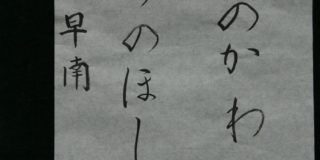 のかわ
のほし
早南